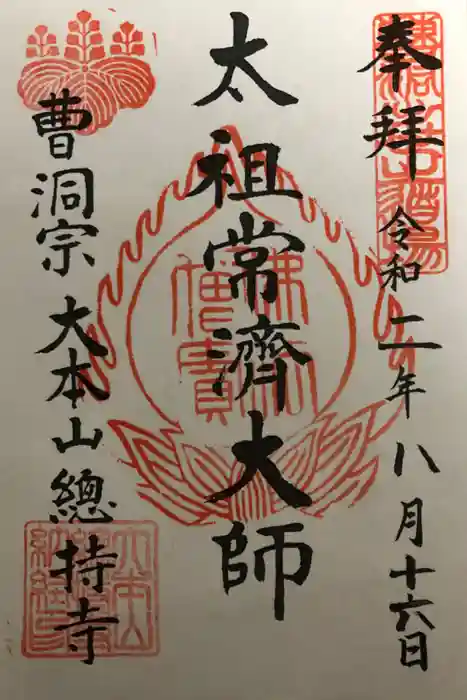 奉拝 令和二年八月十六日
太祖常濟大師
曹洞宗 大本山總持寺
佛法僧寳